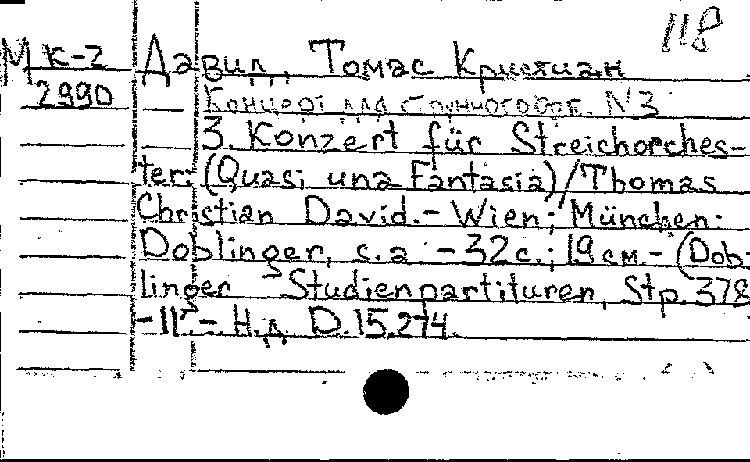 118
М К-2 Давид, Томас Кристиан
2990 Концерт для струнного орк. N3
3. Konzert für Streichorches-
ter: (Quasi una Fantasia)/Thomas
Christian David.- Wien; München:
Doblinger, s.a. - 32с.; 19см.- (Dob-
linger Studienpartituren, Stp. 378)
-II-. Н.д. D.15.274.